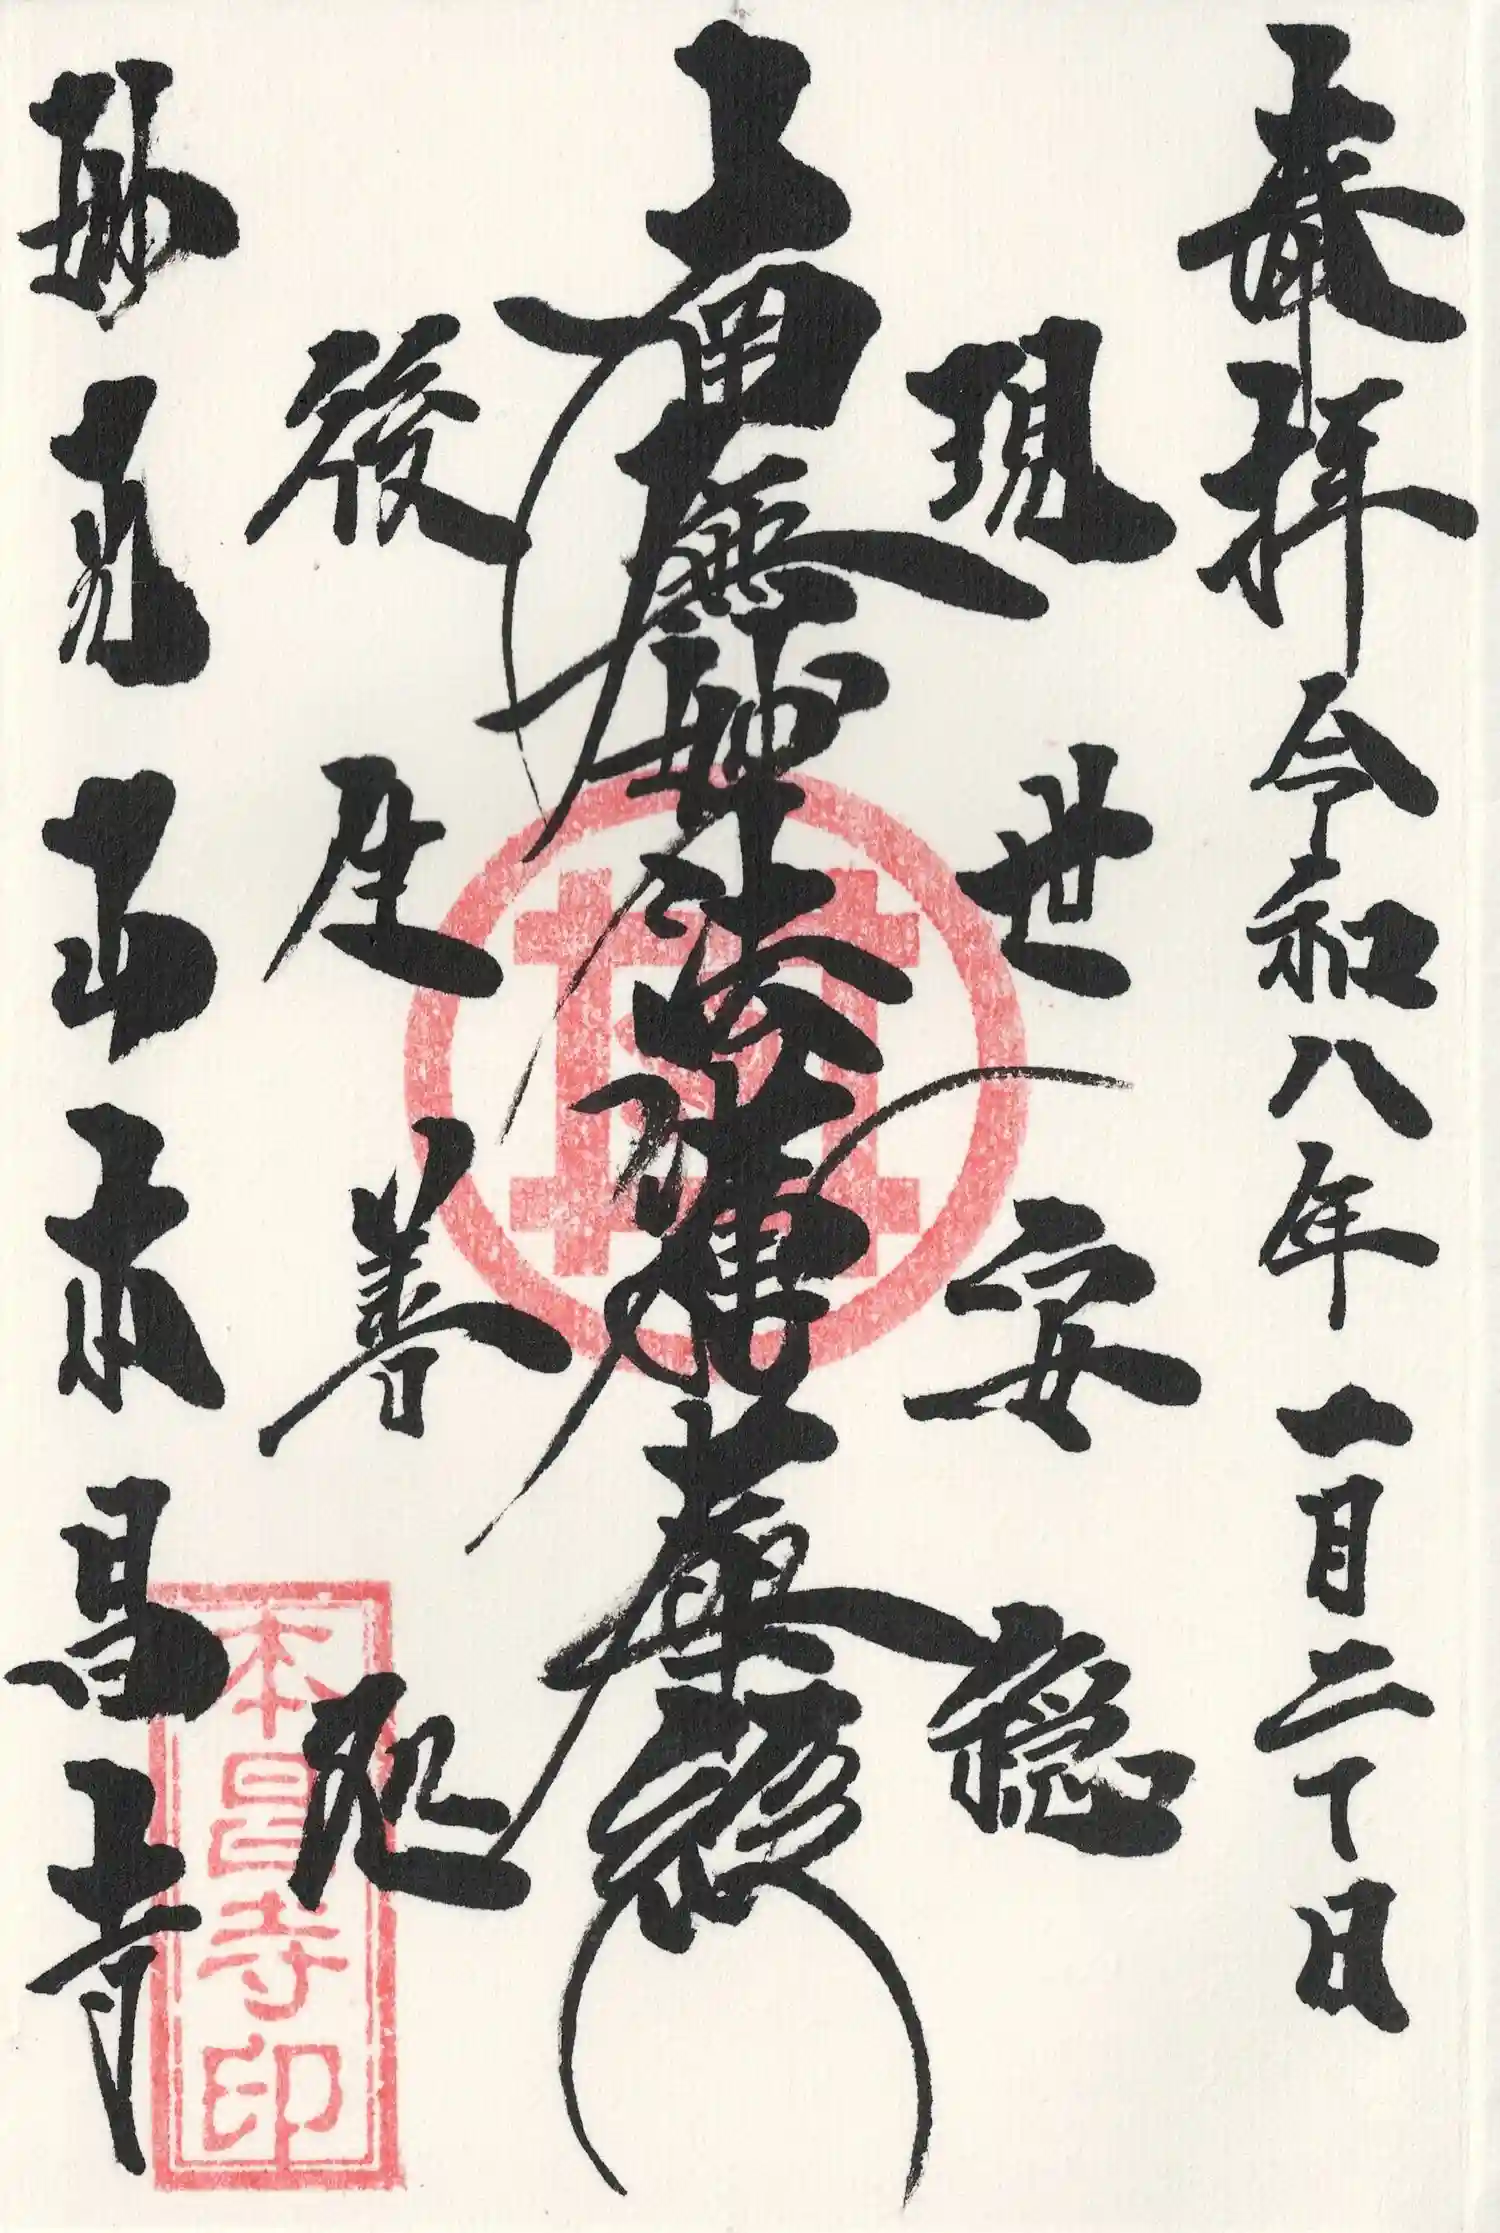 奉拝 令和八年一月二十日
現世安穏
南無妙法蓮華経
後生善処
妙見山本昌寺
本昌寺印